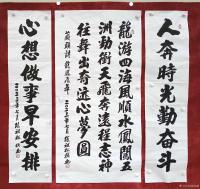 人奔時光勤奋斗
龍游四海風順水鳳闖五
洲動衝天飛奔遠程志神
往舞出奇迹心夢圓
心想做事早安排